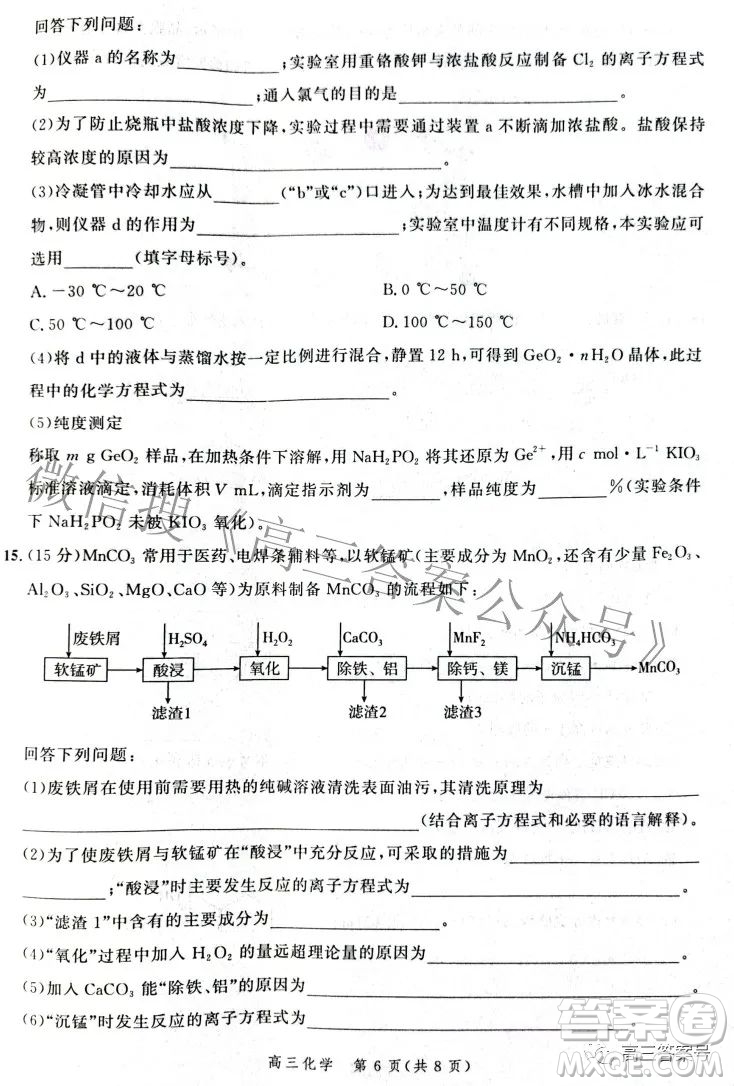 回答下列问题：
(1)仪器 a 的名称为____________；实验室用重铬酸钾与浓盐酸反应制备 Cl₂ 的离子方程式
为____________________；通入氯气的目的是____________________。
(2)为了防止烧瓶中盐酸浓度下降，实验过程中需要通过装置 a 不断滴加浓盐酸。盐酸保持
较高浓度的原因为____________________。
(3)冷凝管中冷却水应从________(“b”或“c”)口进入；为达到最佳效果，水槽中加入冰水混合
物，则仪器 d 的作用为____________________；实验室中温度计有不同规格，本实验应可
选用________(填字母标号)。
A.－30 ℃～20 ℃ B.0 ℃～50 ℃
C.50 ℃～100 ℃ D.100 ℃～150 ℃
(4)将 d 中的液体与蒸馏水按一定比例进行混合，静置 12 h，可得到 GeO₂·nH₂O 晶体，此过
程中的化学方程式为____________________。
(5)纯度测定
称取 m g GeO₂ 样品，在加热条件下溶解，用 NaH₂PO₂ 将其还原为 Ge²⁺，用 c mol·L⁻¹ KIO₃
标准溶液滴定，消耗体积 V mL，滴定指示剂为________，样品纯度为________%(实验条件
下 NaH₂PO₂ 未被 KIO₃ 氧化)。
15.(15 分)MnCO₃ 常用于医药、电焊条辅料等，以软锰矿(主要成分为 MnO₂，还含有少量 Fe₂O₃、
Al₂O₃、SiO₂、MgO、CaO 等)为原料制备 MnCO₃ 的流程如下：
废铁屑 H₂SO₄ H₂O₂ CaCO₃ MnF₂ NH₄HCO₃
软锰矿 酸浸 氧化 除铁、铝 除钙、镁 沉锰 MnCO₃
滤渣1 滤渣2 滤渣3
回答下列问题：
(1)废铁屑在使用前需要用热的纯碱溶液清洗表面油污，其清洗原理为____________
____________________(结合离子方程式和必要的语言解释)。
(2)为了使废铁屑与软锰矿在“酸浸”中充分反应，可采取的措施为____________
________；“酸浸”时主要发生反应的离子方程式为____________________。
(3)“滤渣 1”中含有的主要成分为____________。
(4)“氧化”过程中加入 H₂O₂ 的量远超理论量的原因为____________________。
(5)加入 CaCO₃ 能“除铁、铝”的原因为____________________。
(6)“沉锰”时发生反应的离子方程式为____________________。
高三化学 第 6 页(共 8 页)
微信搜《高三答案公众号》
答案圈
MXQE.COM
高三答案号